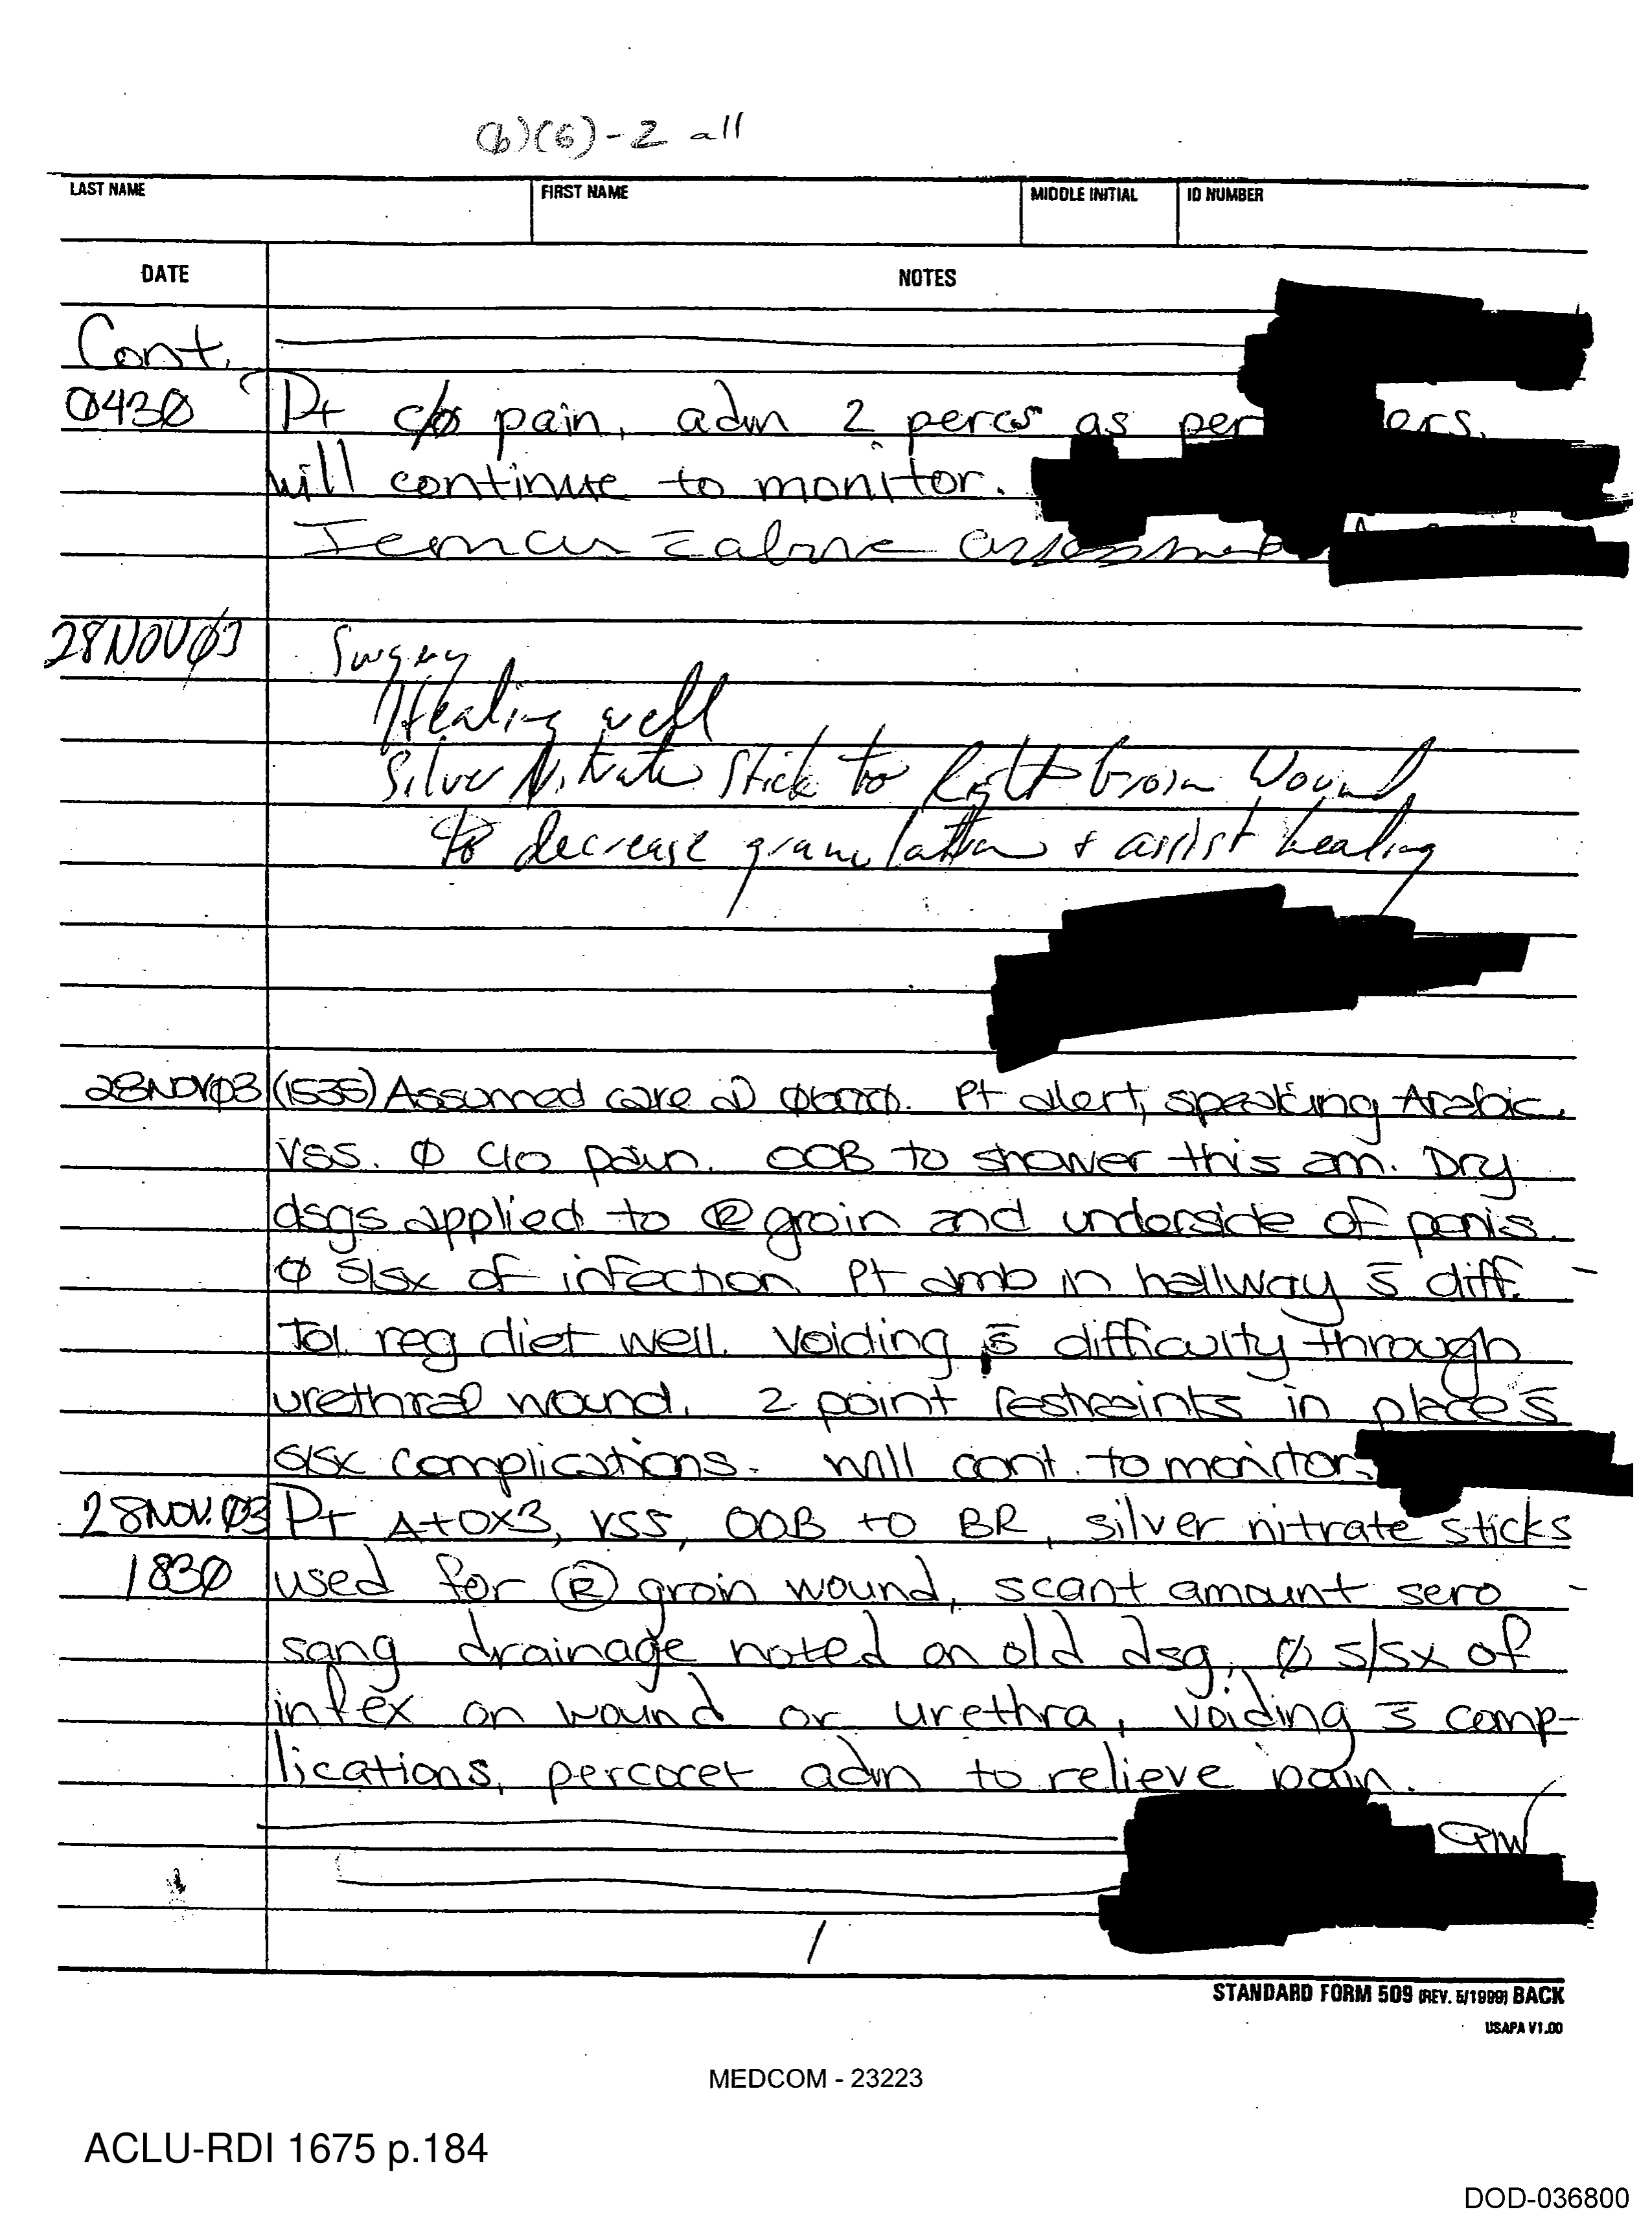 (b)(6)-2 all
LAST NAME FIRST NAME MIDDLE INITIAL ID NUMBER
DATE NOTES
Cont.
0430 Pt c/o pain, adm 2 percs as per ers.
will continue to monitor.
above assessment
28NOV03 Surgery
Healing well
Silver Nitrate Stick to Right Groin Wound
to decrease granulation + assist healing
28NOV03 (1535) Assumed care @ 0600. Pt alert, speaking Arabic.
VSS. Ø c/o pain. OOB to shower this am. Dry
dsgs applied to Ⓡ groin and underside of penis.
Ø s/sx of infection Pt amb in hallway s̄ diff.
Tol reg diet well. Voiding s̄ difficulty through
urethral wound. 2 point restraints in place s̄
s/sx complications. Will cont. to monitor.
28NOV.03 Pt A+OX3, VSS, OOB to BR, silver nitrate sticks
1830 used for Ⓡ groin wound, scant amount sero
sang drainage noted on old dsg, Ø s/sx of
infex on wound or urethra, voiding s̄ comp-
lications, percocet adm to relieve pain.
STANDARD FORM 509 (REV. 5/1999) BACK
USAPA V1.00
MEDCOM - 23223
ACLU-RDI 1675 p.184
DOD-036800